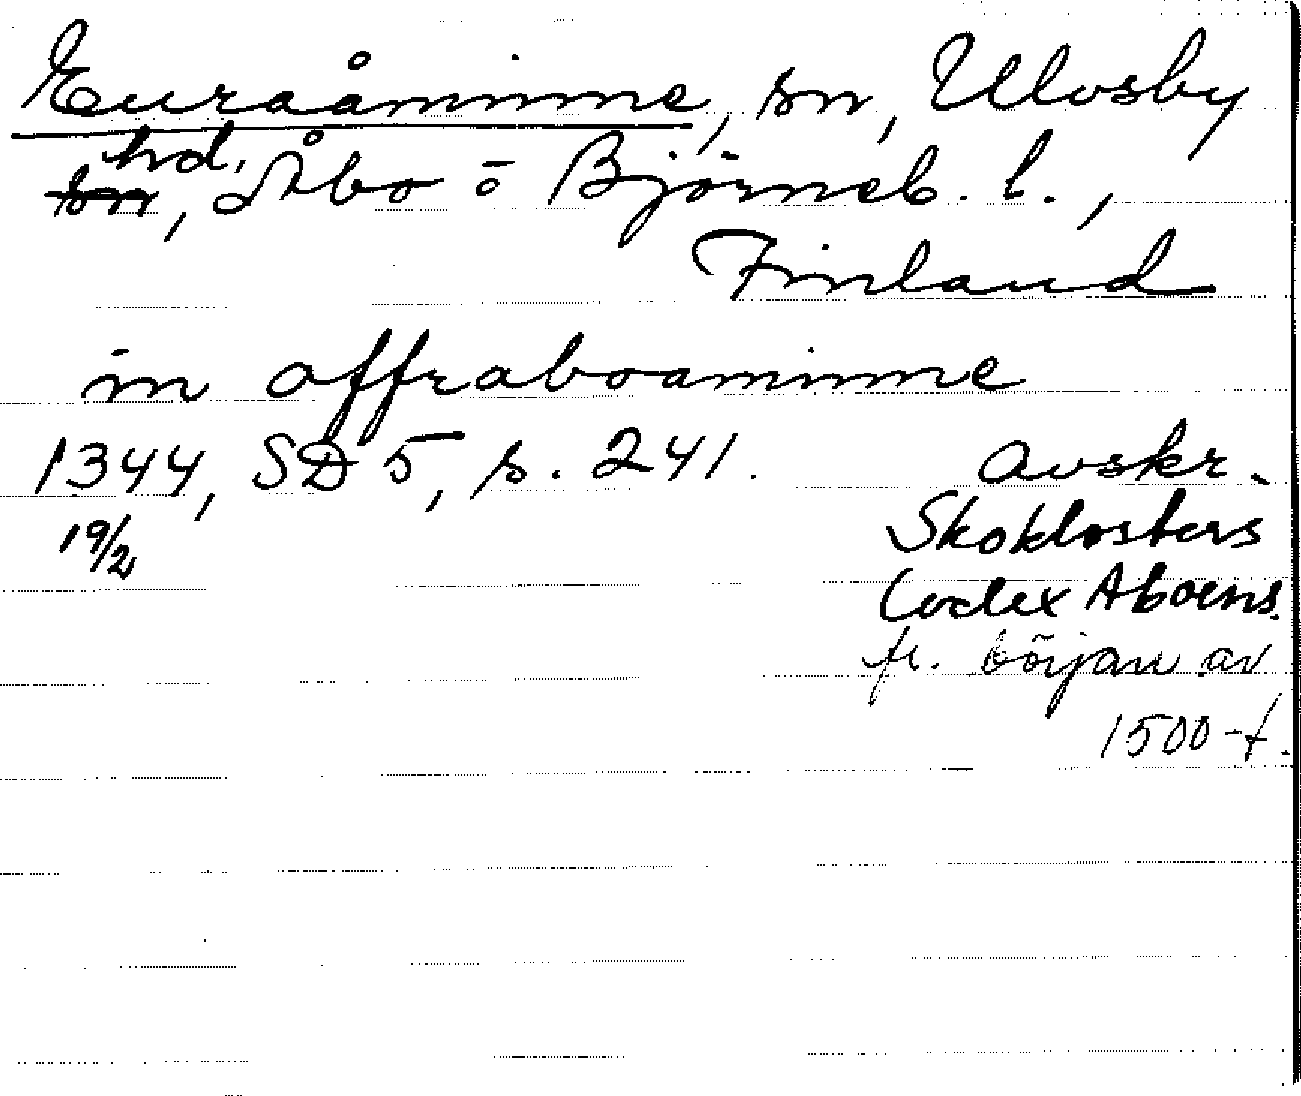 Euraåminne, sn, Ulvsby
hd.
sn, Åbo o Björneb. l.,
Finland
in offraboaminne
1344, SD 5, s. 241.
19/2
avskr.
Skoklosters
Codex Aboens.
fr. början av
1500-t.